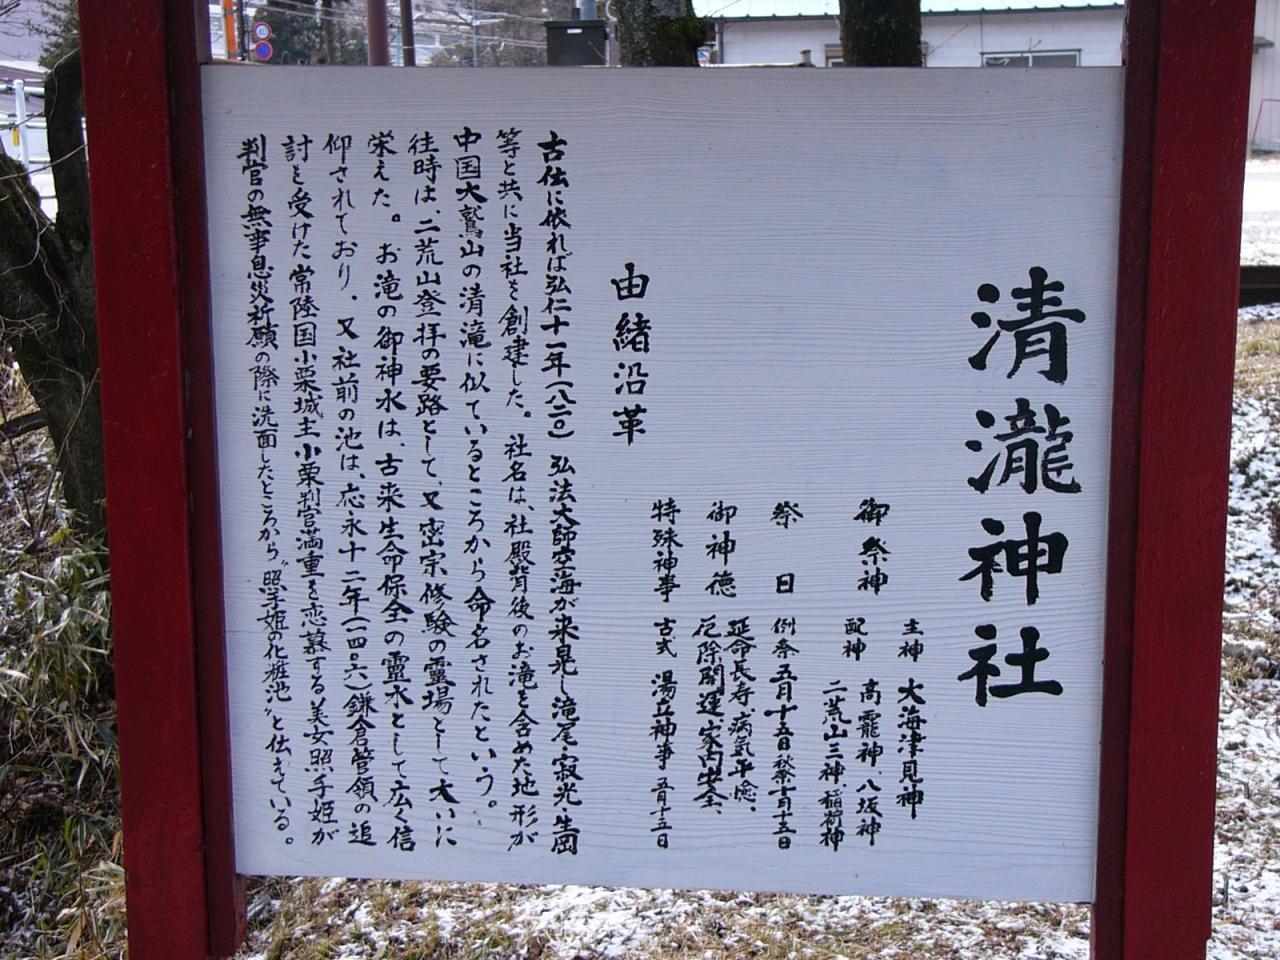 清瀧神社
御祭神 主神 大海津見神
配神 高靇神、八坂神
二荒山三神、稲荷神
祭日 例祭五月十五日秋祭十月十五日
御神徳 延命長寿・病氣平癒・
厄除開運・家内安全、
特殊神事 古式 湯立神事 五月十五日
由緒沿革
古伝に依れば弘仁十一年(八二〇)弘法大師空海が来晃し滝尾・寂光・生岡
等と共に当社を創建した。社名は、社殿背後のお滝を含めた地形が
中国大鷲山の清滝に似ているところから命名されたという。
往時は、二荒山登拝の要路として、又密宗修験の霊場として大いに
栄えた。お滝の御神水は、古来生命保全の靈水として広く信
仰されており、又社前の池は、応永十二年(一四〇六)鎌倉管領の追
討を受けた常陸国小栗城主小栗判官満重を恋慕する美女照手姫が
判官の無事息災祈願の際に洗面したところから〝照手姫の化粧池〟と伝えている。